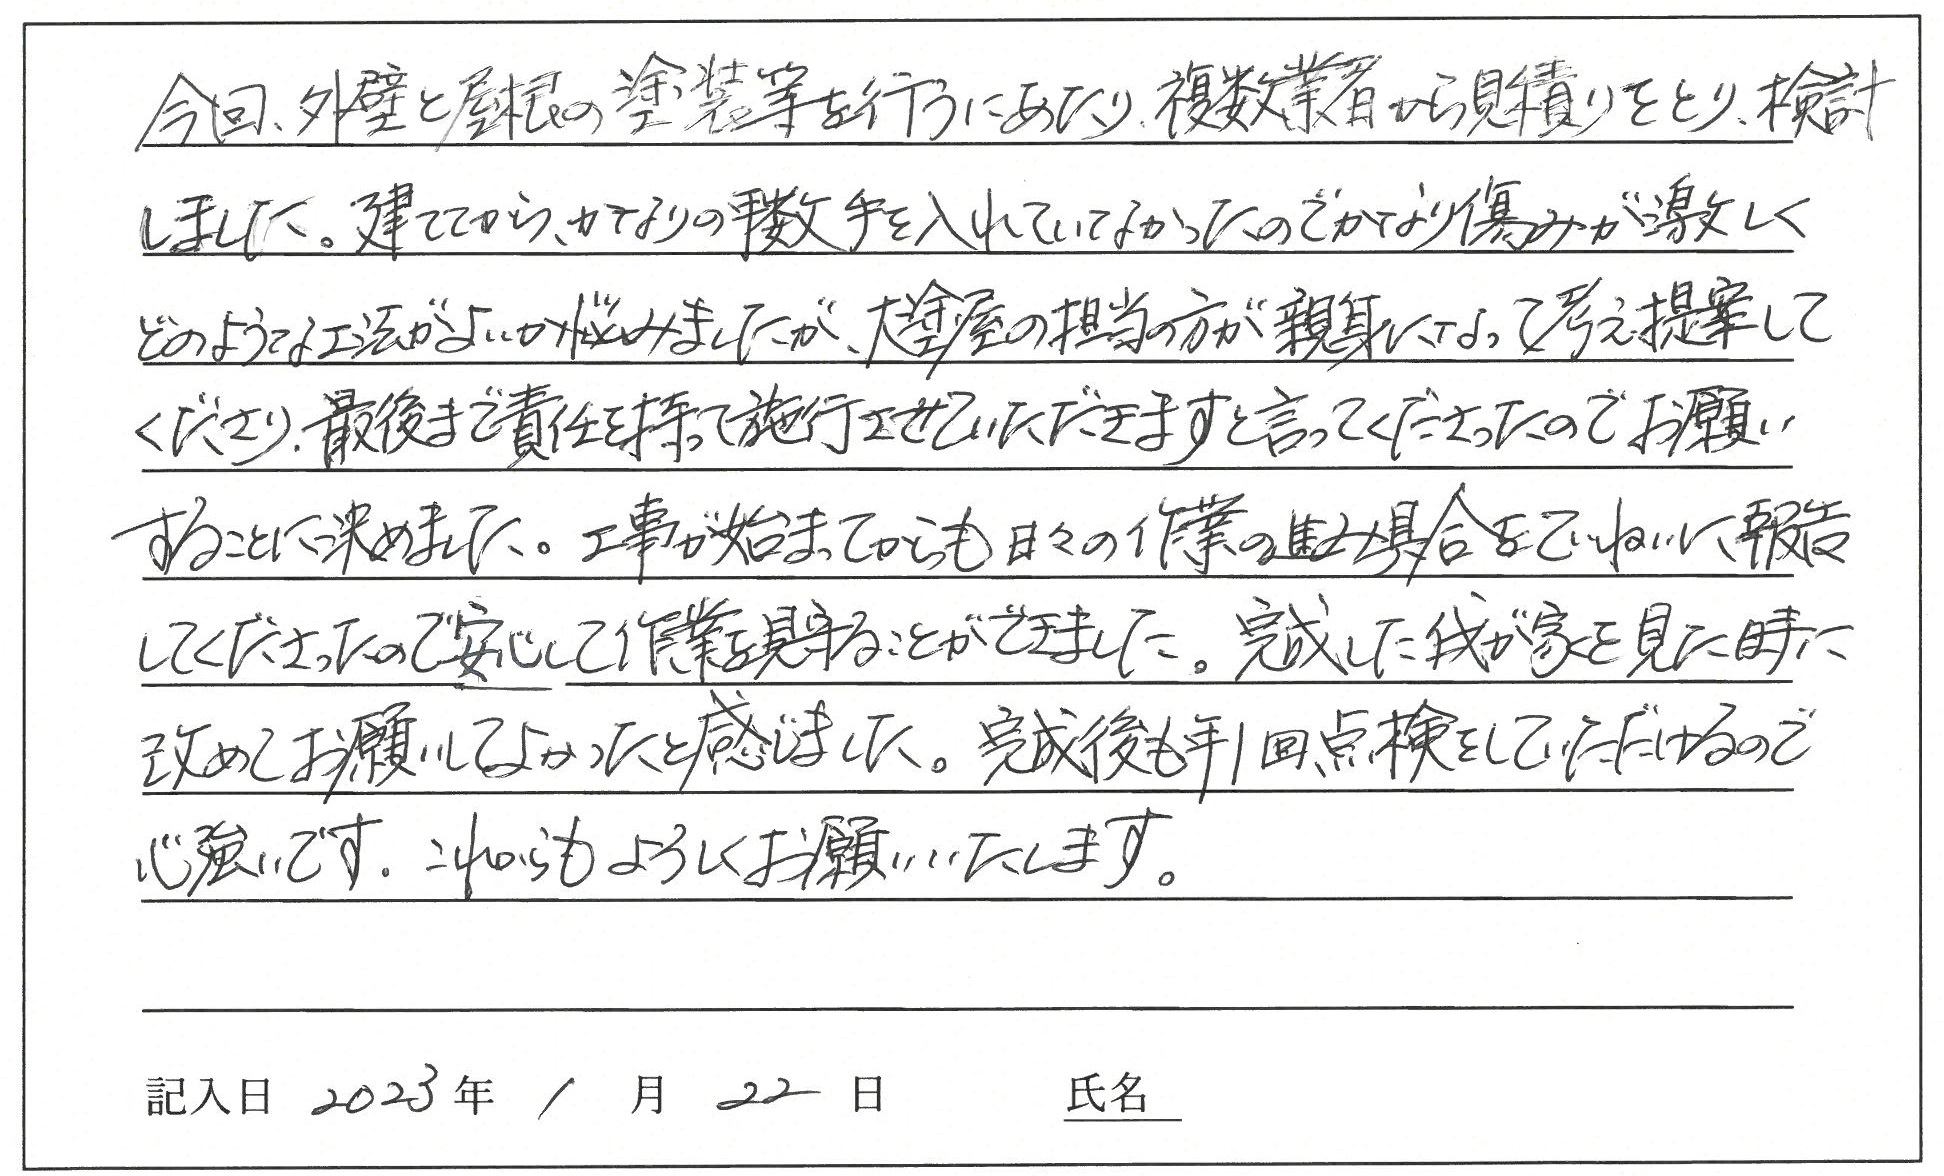 今回、外壁と屋根の塗装等を行うにあたり、複数業者から見積りをとり、検討
しました。建ててから、かなりの年数手を入れていなかったのでかなり傷みが激しく
どのような工法がよいか悩みましたが、大塗屋の担当の方が親身になって考え提案して
くださり、最後まで責任を持って施行させていただきますと言ってくださったのでお願い
することに決めました。工事が始まってからも日々の作業の進み具合をていねいに報告
してくださったので安心して作業を見守ることができました。完成した我が家を見た時に
改めてお願いしてよかったと感じました。完成後も年1回点検をしていただけるので
心強いです。これからもよろしくお願いいたします。
記入日 2023年 1月 22日 氏名